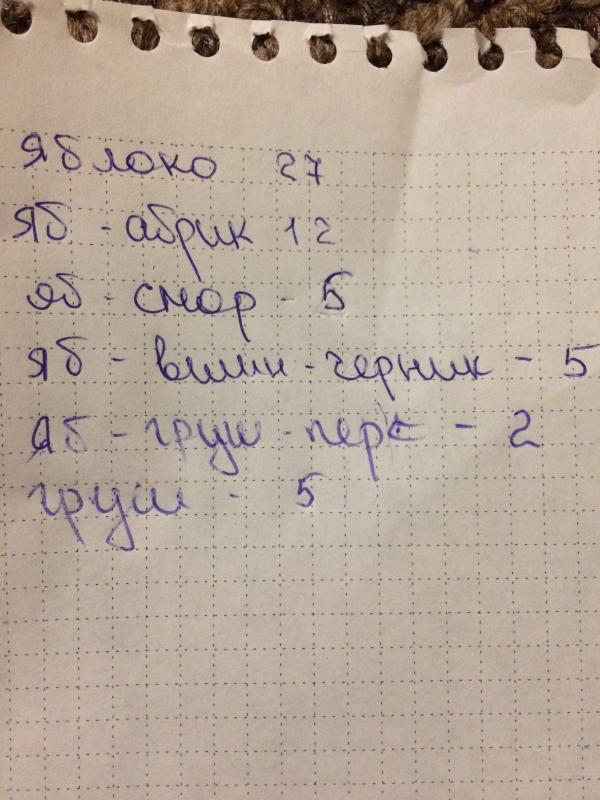 Яблоко 27
Яб - абрик 12
Яб - смор - 5
Яб - вишн - черник - 5
Яб - груш - перс - 2
груш - 5